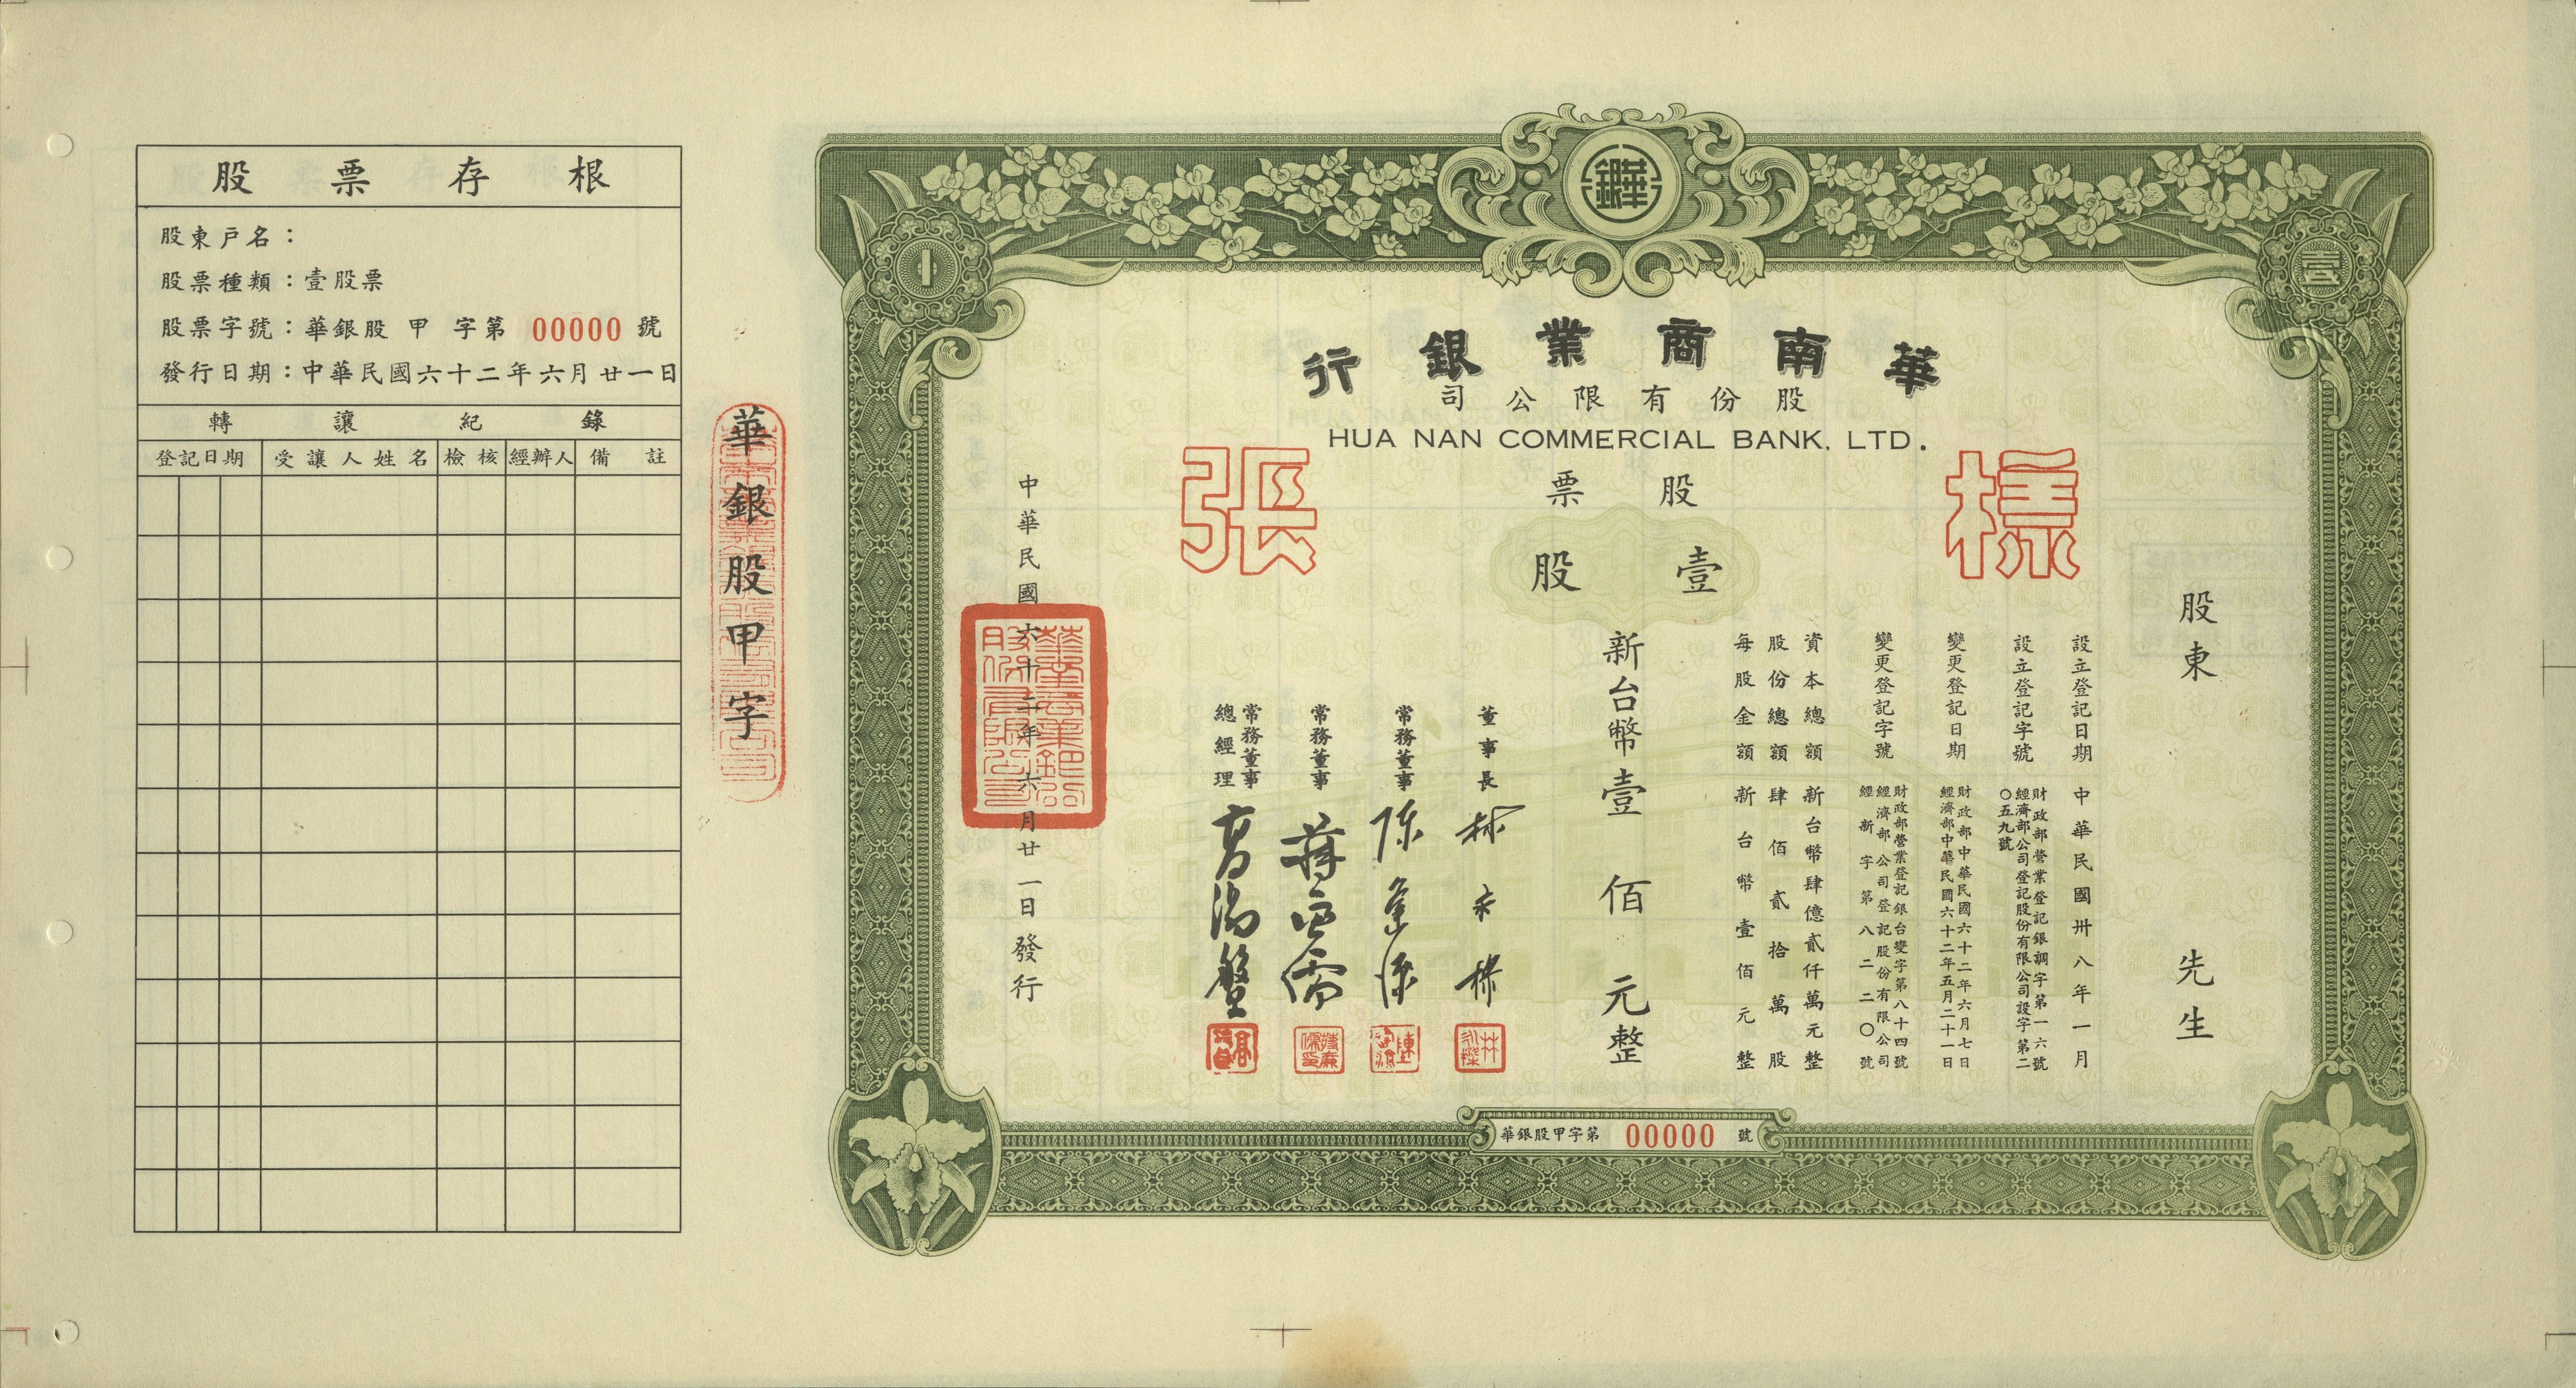 股票存根
股東戶名：
股票種類：壹股票
股票字號：華銀股 甲 字第 00000 號
發行日期：中華民國六十二年六月廿一日
轉讓紀錄
登記日期 受讓人姓名 檢核 經辦人 備註
華銀股甲字
壹
1
華南商業銀行
股份有限公司
HUA NAN COMMERCIAL BANK, LTD.
樣張
股票
壹股
股東 先生
設立登記日期 中華民國卅八年一月
設立登記字號 財政部營業登記銀調字第一六號
經濟部公司登記股份有限公司設字第二
〇五九號
變更登記日期 財政部中華民國六十二年六月七日
經濟部中華民國六十二年五月二十一日
變更登記字號 財政部營業登記銀台變字第八十四號
經濟部公司登記股份有限公司
經新字第八二二〇號
資本總額 新台幣肆億貳仟萬元整
股份總額 肆佰貳拾萬股
每股金額 新台幣壹佰元整
新台幣壹佰元整
董事長 林永樑
常務董事
常務董事
常務董事
總經理
中華民國六十二年六月廿一日發行
華南商業銀行股份有限公司
華銀股甲字第 00000 號